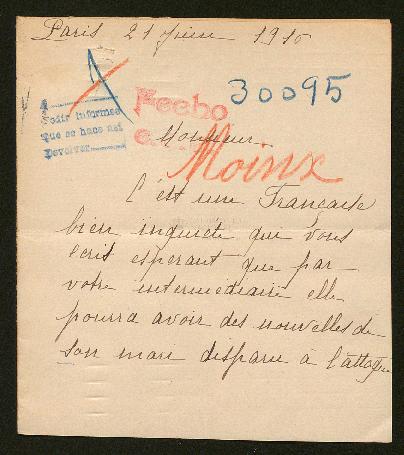 Paris 21 1916
30095
Pedir informes
Que se hace así
Devolver
Fecho
Monsieur
Moinx
C'est une Française
bien inquiete qui vous
ecrit esperant que par
votre intermédiaire elle
pourra avoir des nouvelles de
son mari disparu à l'attaque